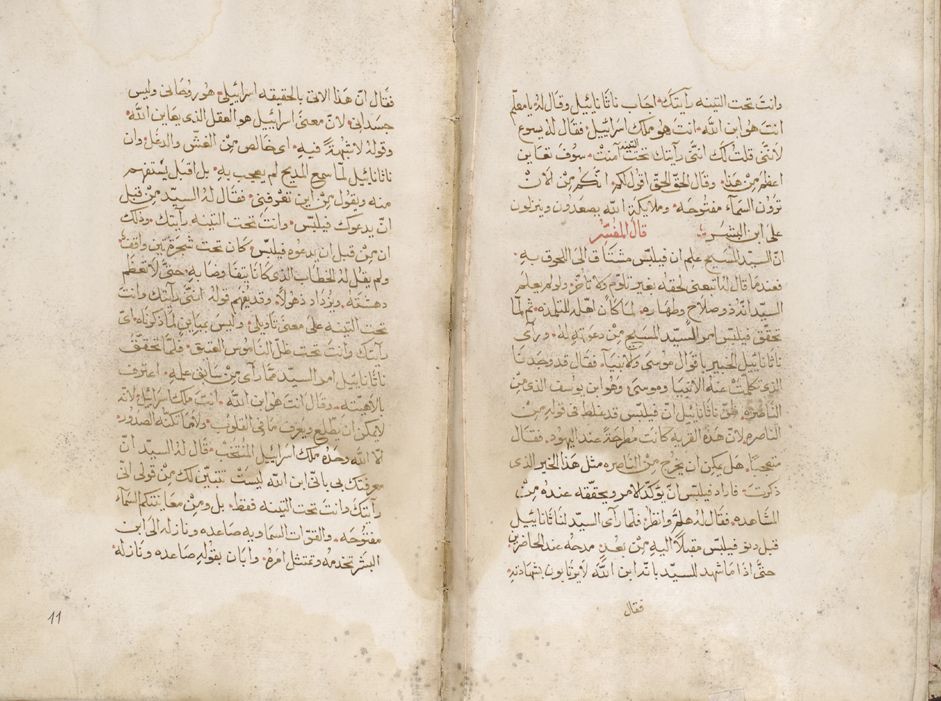 وانت تحت التينه رأيتك اجاب ناثانائيل وقال له يا معلم
انت هو ابن الله انت هو ملك اسرائيل فقال له يسوع
لانني قلت لك انني رأيتك تحت التينه آمنت سوف تعاين
اعظم من هذا وقال الحق الحق اقول لكم انكم من الان
ترون السماء مفتوحه وملائكة الله يصعدون وينزلون
على ابن البشر قال المفسر
ان السيد المسيح علم ان فيلبس مشتاق الى اللحوق به
فعندما قال له اتبعني لحقه بغير تلوم ولا تأخر ولو لم يعلم
السيد انه ذو صلاح وطهاره لما كان اهله للتلمذه ثم لما
تحقق فيلبس امر السيد المسيح من دعوته له ورأى
ناثانائيل الخبير باقوال موسى والانبياء فقال قد وجدنا
الذي تكلمت عنه الانبيا وموسى وهو ابن يوسف الذي من
الناصره ظن ناثانائيل ان فيلبس قد غلط في قوله من
الناصره لان هذه القريه كانت مطرحة عند اليهود فقال
متعجبا هل يمكن ان يخرج من الناصره مثل هذا الخير الذي
ذكرت فاراد فيلبس ان يوكد الامر ويحققه عنده من
المشاهده فقال له هلم وانظر فلما رأى السيد لناثانائيل
قبل دنو فيلبس مقبلا اليه من بعد مدحه عند الحاضرين
حتى اذا ما شهد للسيد بانه ابن الله لا يرتابون بشهادته
فقال
فقال ان هذا الاتي بالحقيقه اسرائيلي هو روحاني وليس
جسداني لان معنى اسرائيل هو العقل الذي يعاين الله
وقوله لا شبهة فيه اي خالص من الغش والدغل وان
ناثانائيل لما سمع المديح لم يعجب به بل اقبل يستفهم
منه ويقول من اين تعرفني فقال له السيد من قبل
ان يدعوك فيلبس وانت تحت التينه رأيتك وذلك
ان من قبل ان يدعوه فيلبس كان تحت شجرة تين واقفا
ولم يقل له الخطاب الذي كانا يتفاوضا به حتى لا تعظم
دهشته ويزداد ذهولا وقد يفهم قوله انني رأيتك وانت
تحت التينه على معنى تاويلي وليس بمباين لما ذكرناه اي
رأيتك وانت تحت ظل الناموس العتيق فلما تحقق
ناثانائيل امر السيد مما رأى من سابق علمه اعترف
بالاهيته وقال انت هو ابن الله انت ملك اسرائيل لانه
لا يمكن ان يطلع ويعرف ما في القلوب ولا ما تكنه الصدور
الا الله وحده ملك اسرائيل المنتخب قال له السيد ان
معرفتك بي باني ابن الله ليست تتبين لك من قولي اني
رأيتك وانت تحت التينه فقط بل ومن معاينتكم السماء
مفتوحه والقوات السماويه صاعده ونازله الى ابن
البشر تخدمه وتمتثل امره وابان بقوله صاعده ونازله
11